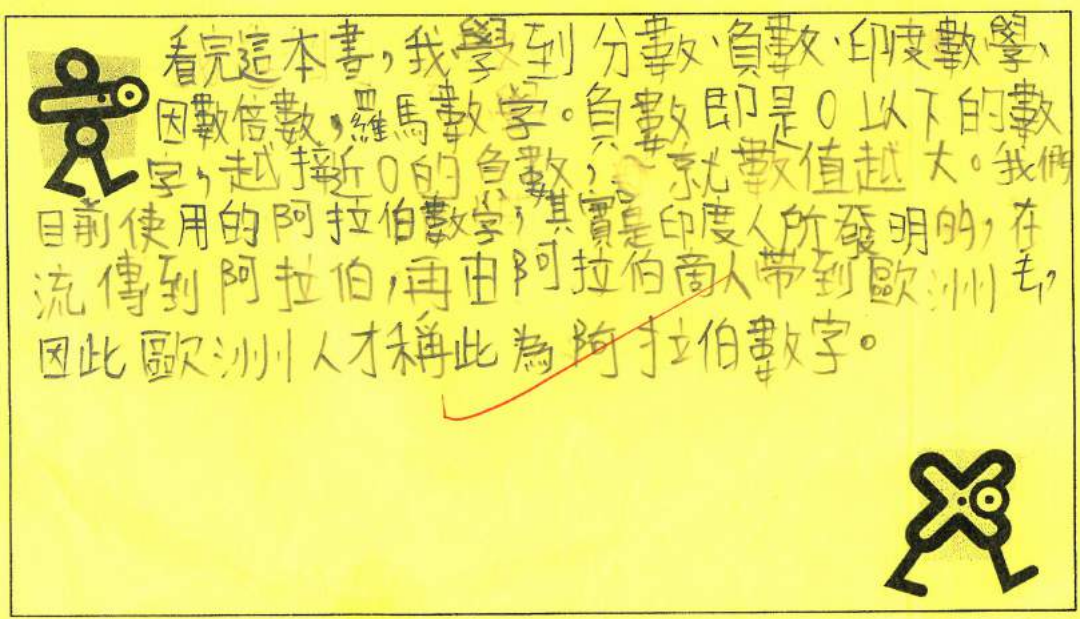 看完這本書，我學到分數、負數、印度數學、
因數倍數，羅馬數字。負數即是0以下的數
字，越接近0的負數，就數值越大。我們
目前使用的阿拉伯數字，其實是印度人所發明的，在
流傳到阿拉伯，再由阿拉伯商人帶到歐洲去，
因此歐洲人才稱此為阿拉伯數字。